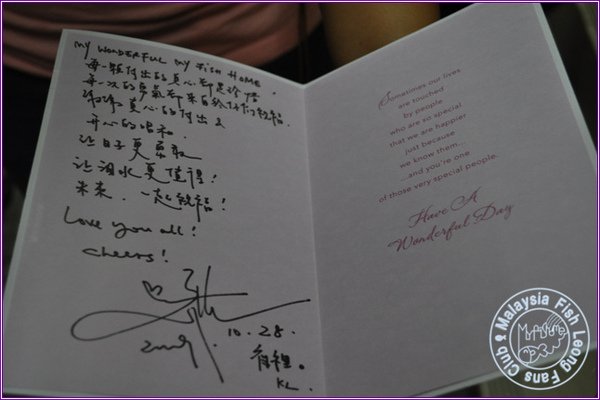 MY WONDERFUL MY FISH HOME.
每一顆付出的真心都是珍惜
每一次的勇氣都來自於你們的祝福.
謝謝真心的付出
開心的唱和.
讓日子更勇敢
讓淚水更值得!
未來. 一起祝福!
Love you all!
cheers!
10.28.
2009
KL
Sometimes our lives
are touched
by people
who are so special
that we are happier
just because
we know them...
...and you're one
of those very special people.
Have A
Wonderful Day
Malaysia Fish Leong Fans Club